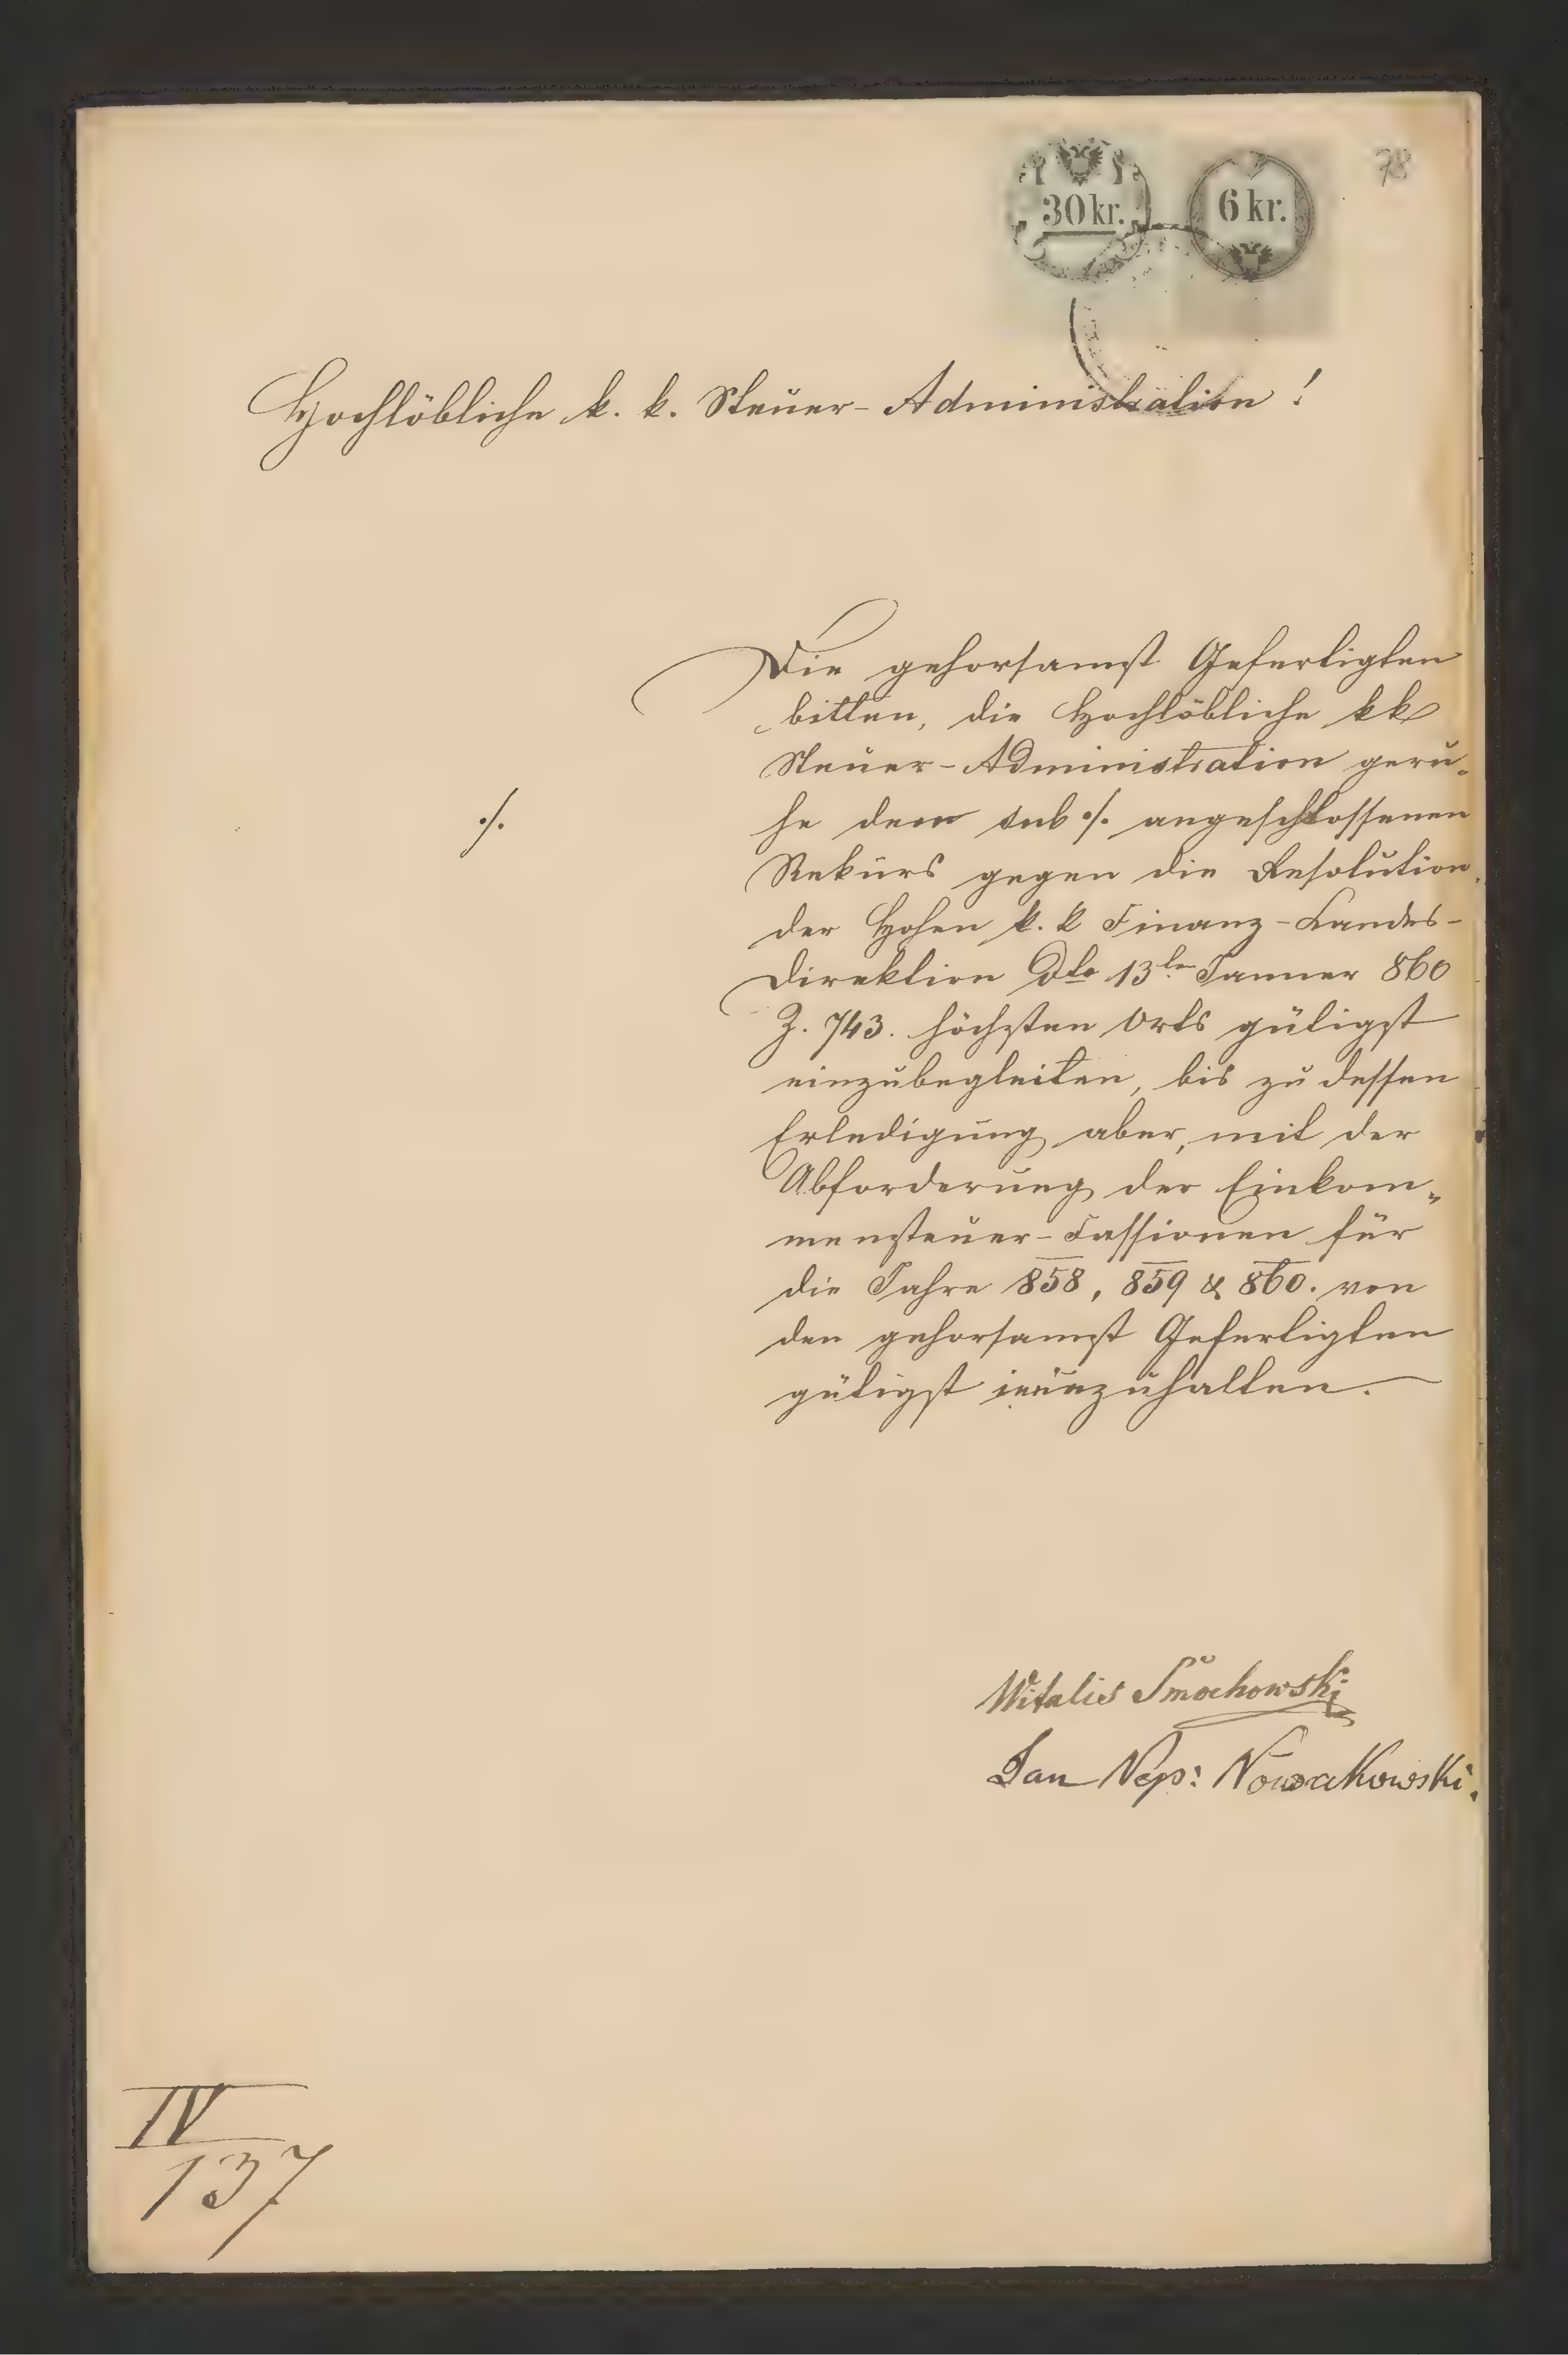 78
30 kr. 6 kr.
Hochlöbliche k. k. Steuer-Administration!
Die gehorsamst Gefertigten
bitten, die Hochlöbliche kk
Steuer-Administration geru-
./. he den sub ./. angeschlossenen
Rekurs gegen die Resolution
der Hohen k. k Finanz-Landes-
Direktion dto 13ten Janner 860
Z. 743. höchsten Orts gütigst
einzubegleiten, bis zu dessen
Erledigung aber, mit der
Abforderung der Einkom„
mensteuer-Fassionen für
die Jahre 858, 859 & 860. von
den gehorsamst Gefertigten
gütigst innezuhalten.
Witalis Smochowski
Jan Nep: Nowakowski.
IV
137